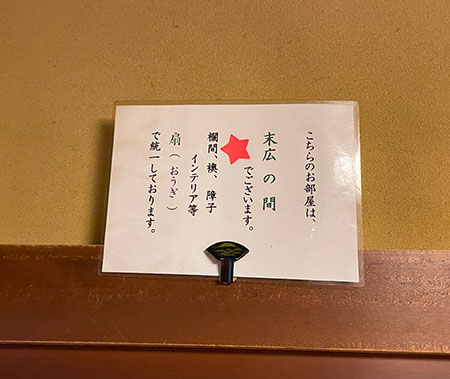 こちらのお部屋は、
末広の間
でございます。
欄間、襖、障子
インテリア等
扇(おうぎ)
で統一しております。